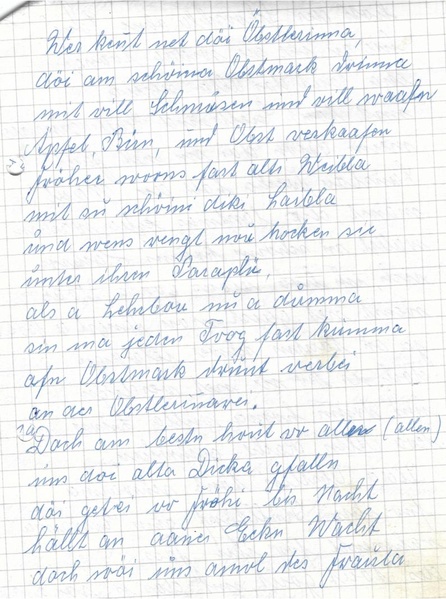 Wer kent net döi Öbstlerinna,
döi am schöina Obstmark drinna
mit vill Schmåsen und vill waafn
Äpfel, Birn, und Obst verkaafen
Fröher worns fast alti Weibla
mit su schöine diki Laibla
und wens rengt nou hocken sie
unter ihrn Paraplü,
als a Lehrbou nu a dumma
sin ma jeden Troog fast kumma
afn Obstmark drunt verbei
an der Obstlerinarei.
Doch am bestn hout vo allen (allen)
uns doi alta Dicka gfalln
däi getei vo Fröhi bis Nacht
hällt an aaner Eckn Wacht
doch wöi uns amol des Fraula